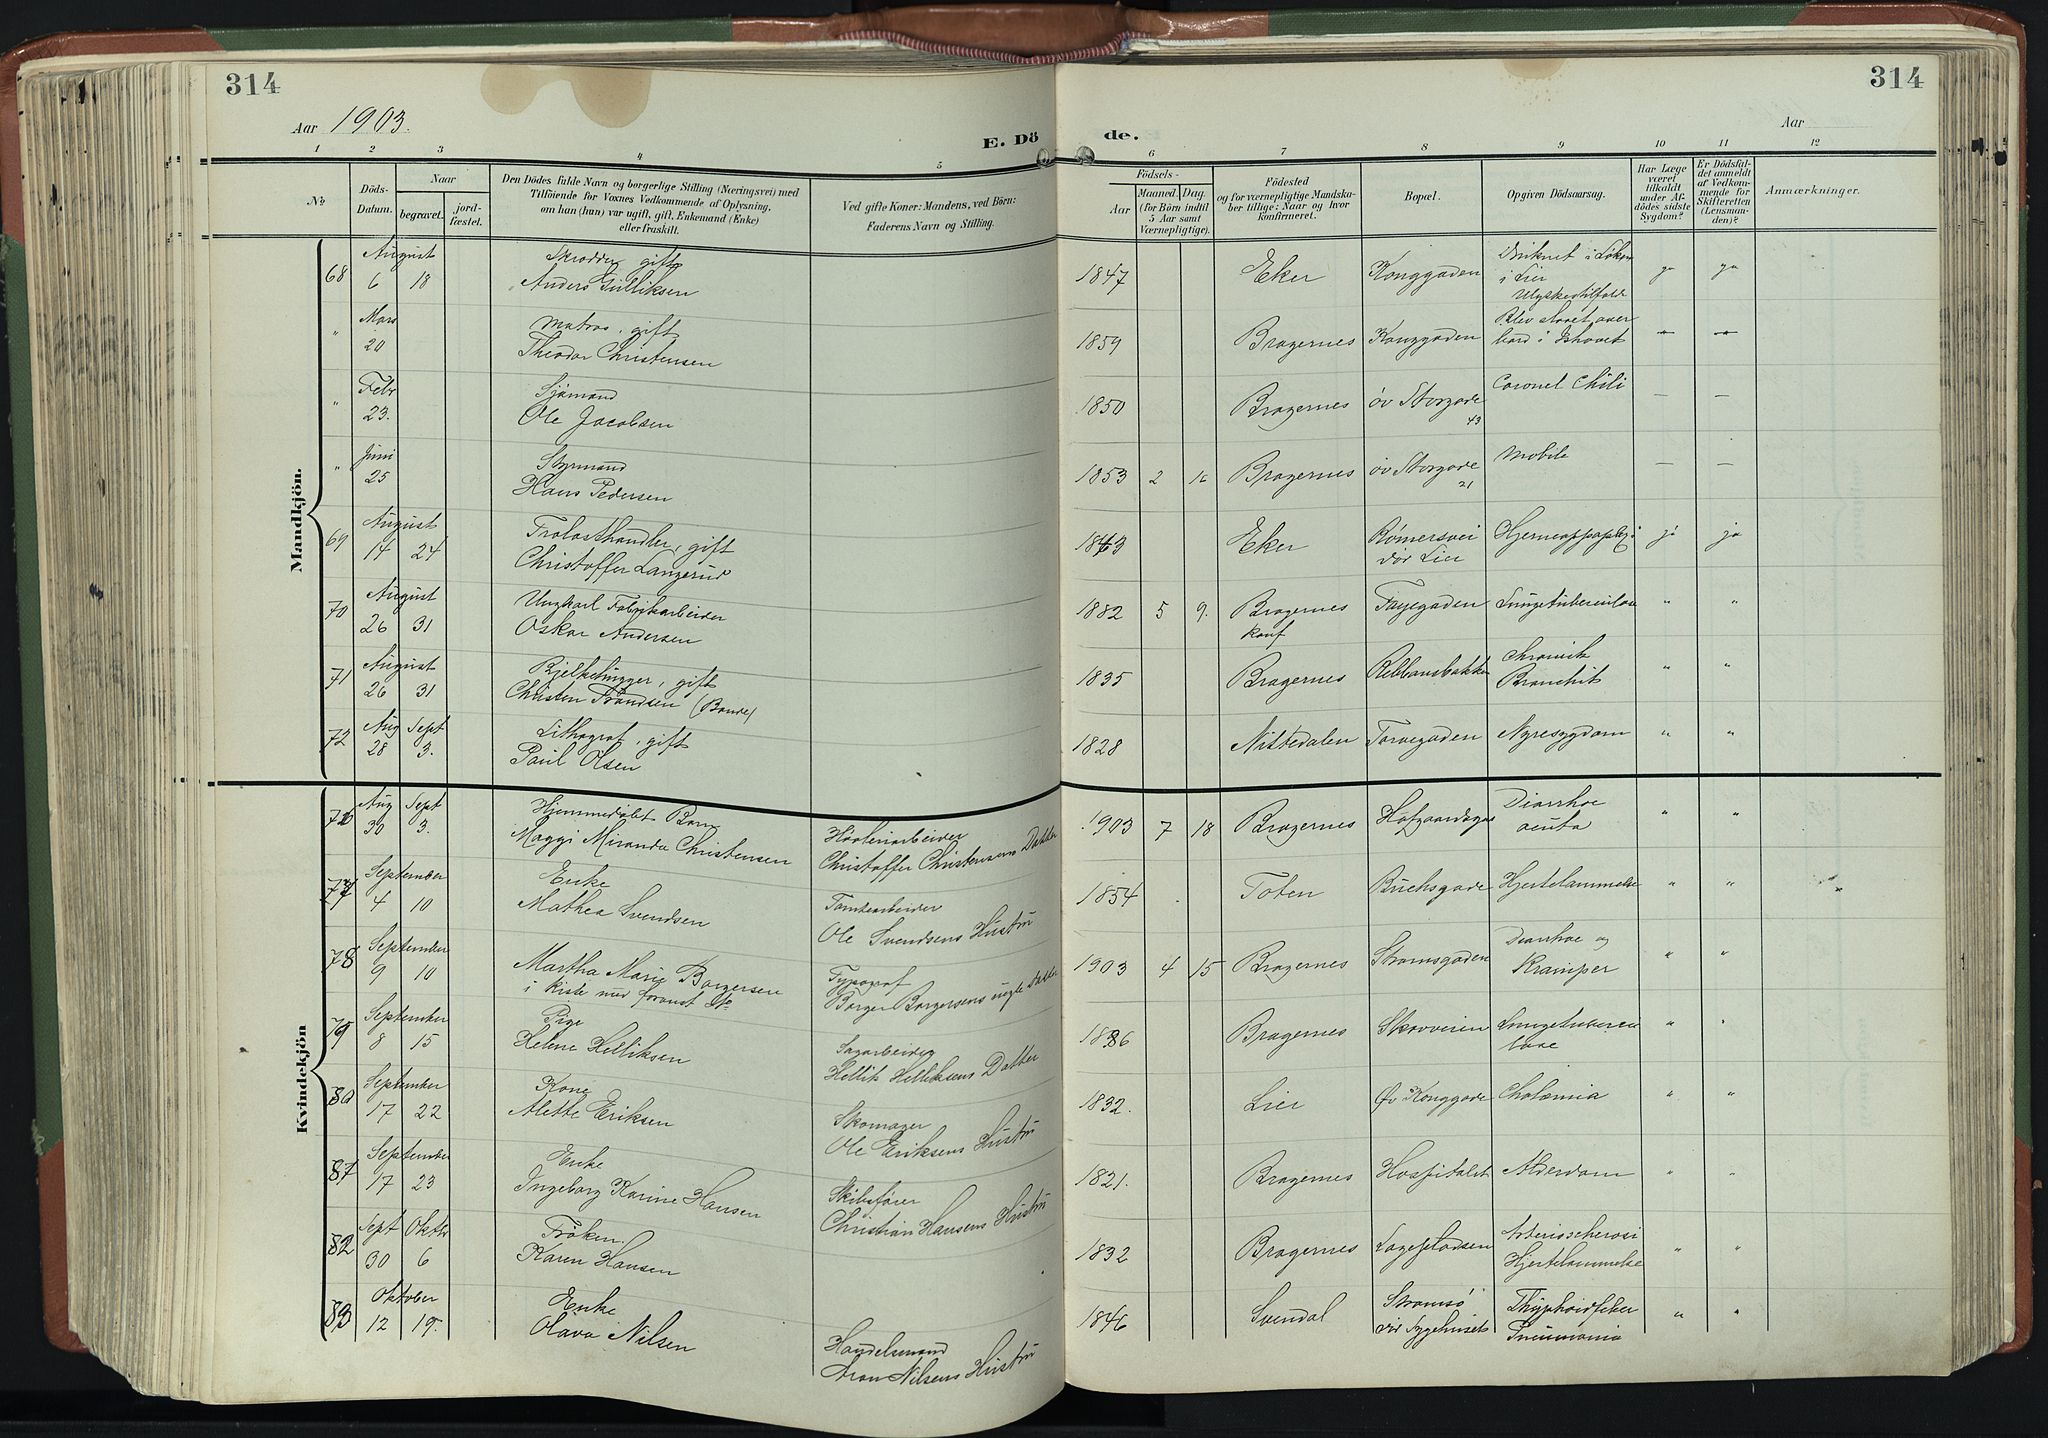 314
314
Aar 1903.
E. Dö de.
Aar
1 2 3 4 5 6 7 8 9 10 11 12
No
Döds-Datum.
Naar
begravet.
jord-fæstet.
Den Dödes fulde Navn og borgerlige Stilling (Næringsvei) med
Tilföiende for Voxnes Vedkommende af Oplysning,
om han (hun) var ugift, gift, Enkemand (Enke)
eller fraskilt.
Ved gifte Koner: Mandens, ved Börn:
Faderens Navn og Stilling.
Födsels-
Aar
Maaned. Dag.
(for Börn indtil
5 Aar samt
Værnepligtige).
Födested
og for værnepligtige Mandska-
ber tillige: Naar og hvor
konfirmeret.
Bopæl.
Opgiven Dödsaarsag.
Har Læge
været
tilkaldt
under Af-
dödes sidste
Sygdom?
Er Dödsfal-
det anmeldt
af Vedkom-
mende for
Skifteretten
(Lensman-
den)?
Anmærkninger.
Mandkjön.
August Skrædder gift Druknet i
68 6 18 Anders Gulliksen 1847 Eker Konggaden i Lier ja ja
Ulykkestilfæld
Mars Matros, gift Blev slaaet over
" 20 Theodor Christensen 1859 Bragernes Konggaden bord i Ishavet " "
Febr Sjømand Coronel Chili
" 23. Ole Jacobsen 1850 Bragernes øv Storgade 43 — —
Juni Styrmand Mobile
" 25 Hans Pedersen 1853 2 16 Bragernes øv Storgade 21 — —
August Trælasthandler, gift Rømersvei Hjerneapoplexi
69 14 24 Christoffer Langerud Eker dør Lier ja ja
August Ungkarl Fabrikarbeider
70 26 31 Oskar Andersen 1882 5 9. Bragernes Fayegaden Lungetuberculose " "
konf
August gift Chronisk
71 26 31 Christen Trondsen 1835 Bragernes Rebbansbakken Bronchit " "
Aug Sept Lithograf, gift
72 28 3. Paul Olsen 1828 Nittedalen Torvegaden Nyresygdom " "
Kvindekjön
Aug Sept Hjemmedøbt Barn Diarrhoe
30 3. Maggi Miranda Christensen Havnearbeider 1903 7 18 Bragernes acuta " "
Christoffer Christensens Datter
September Enke
77 4 10 Mathea Svendsen Tomtearbeider 1854 Toten Buchsgade Hjertelammelse " " "
Ole Svendsens Hustru
September Diarrhoe og
78 9 10 Martha Marie Borgersen Typograf 1903 4 15 Bragernes Strømsgaden Kramper " "
i kiste med
Borger Borgersens uægte Datter
September Pige
79 8 15 Helene Helliksen Sagarbeider 1886 Bragernes Skovveien Lungetubercu " "
lose
Hellik Helliksens Datter
September Kone
80 17 22 Alette Eriksen Skomager 1832. Lier Øv Konggade Cholæmia " "
Ole Eriksens Hustru
September Enke
17 23 Ingeborg Karine Hansen Skibsfører 1821. Bragernes Hospitalet Alderdom " "
Christian Hansens Hustru
Sept Oktbr Frøken.
82 30 6 Karen Hansen 1832 Bragernes Hjertelammelse " "
Oktober Enke Strømsø Thyphoidfeber
83 12 19. Olava Nilsen 1846 Svendal dør Sygehuset Pneumonia " "
Handelsmand
Aron Nilsens Hustru